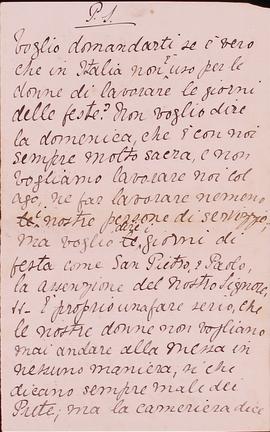 P.S
Voglio domandarti se è vero
che in Italia non è uso per le
donne di lavorare le giorni
delle feste? Non voglio dire
la domenica, che è con noi
sempre molto sacra, e non
vogliamo lavorare noi col
ago, ne far lavorare nemeno
le nostre persone di servizzo;
ma voglio dire i giorni di
festa come San Pietro, e Paolo,
la assenzione del Nostro Signore,
È proprio una fare serio, che
le nostre donne non vogliano
mai andare alla messa in
nessuno maniera, si che
dicano sempre male dei
Prete; ma la cameriera dice